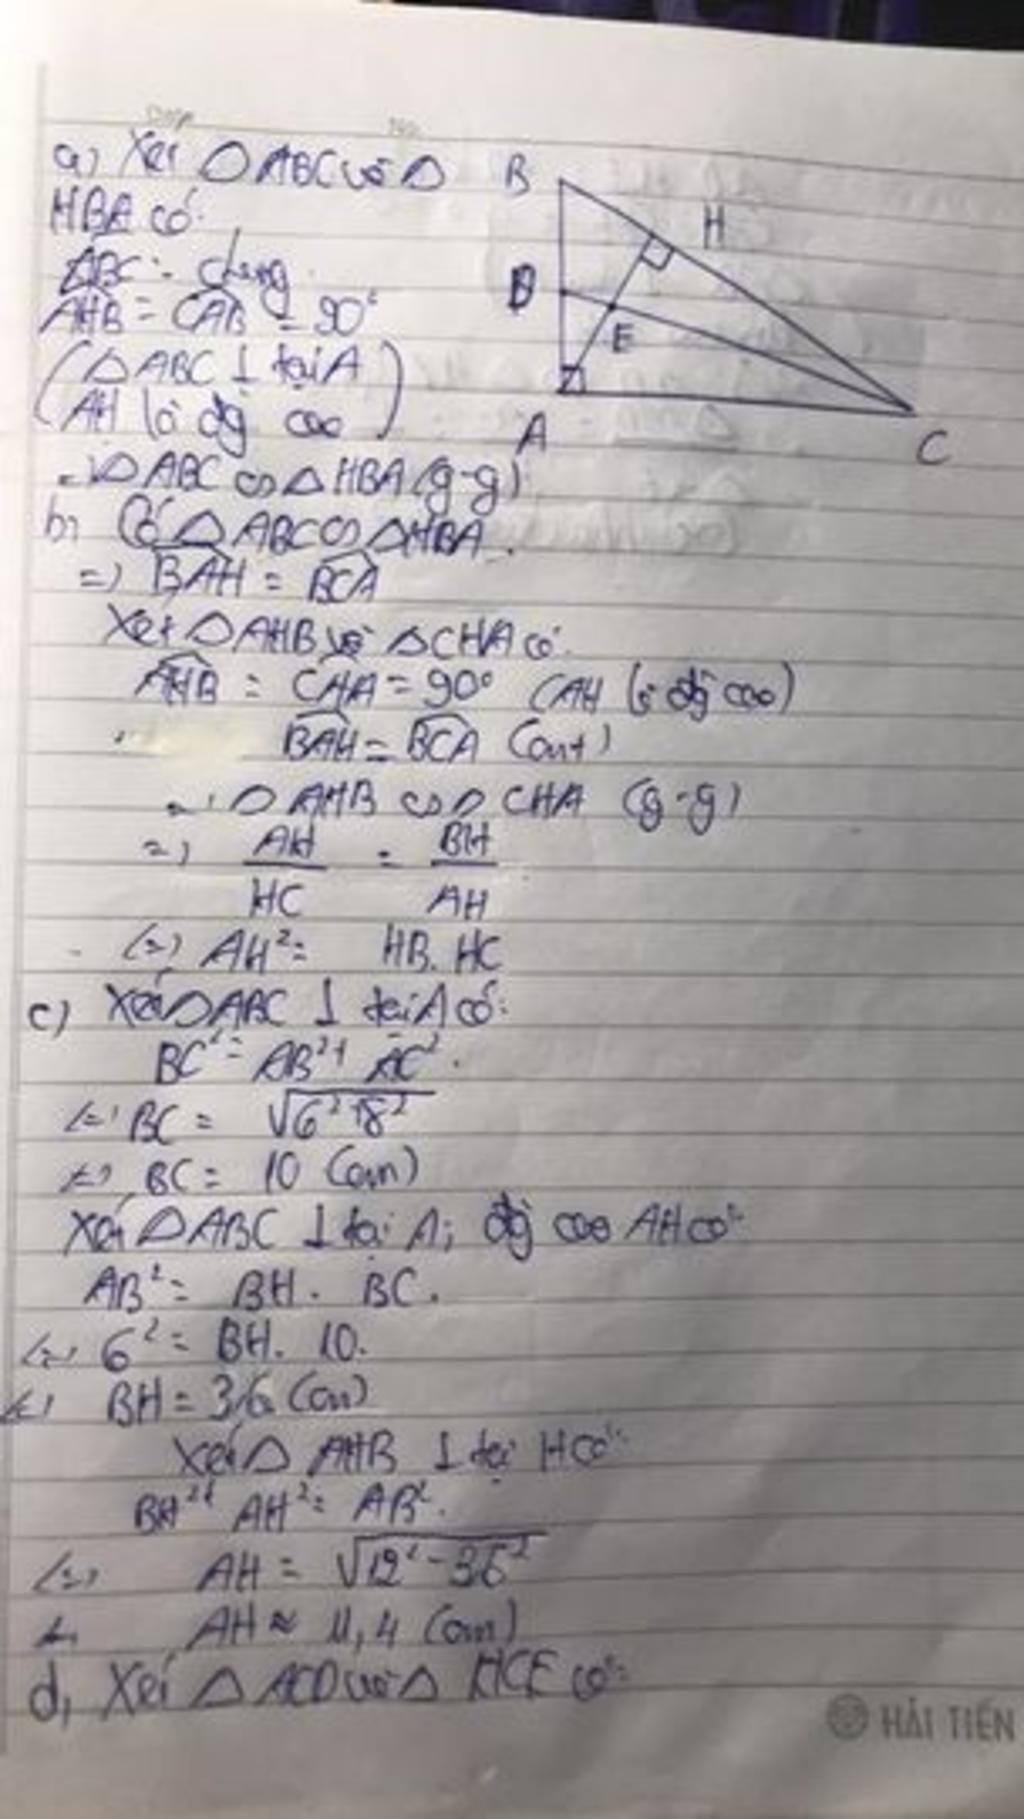 a) Xét △ABC và △
HBA có:
ABC: chung
AHB = CAB = 90°
(△ABC ⊥ tại A
AH là đg cao)
=> △ABC ∽ △HBA (g-g)
b) Có △ABC ∽ △HBA.
=> BAH = BCA
Xét △AHB và △CHA có:
AHB = CHA = 90° (AH là đg cao)
BAH = BCA (cmt)
=> △AHB ∽ △CHA (g-g)
=> AH/HC = BH/AH
(=) AH² = HB. HC
c) Xét △ABC ⊥ tại A có:
BC² = AB² + AC².
(=) BC = √6²+8²
(=) BC = 10 (cm)
Xét △ABC ⊥ tại A; đg cao AH có:
AB² = BH. BC.
(=) 6² = BH. 10.
(=) BH = 3,6 (cm)
Xét △AHB ⊥ tại H có:
BH² + AH² = AB².
(=) AH = √12² - 3,6²
AH ≈ 11,4 (cm)
d, Xét △ACD và △HCE có:
B
H
D
E
A
C
HẢI TIẾN